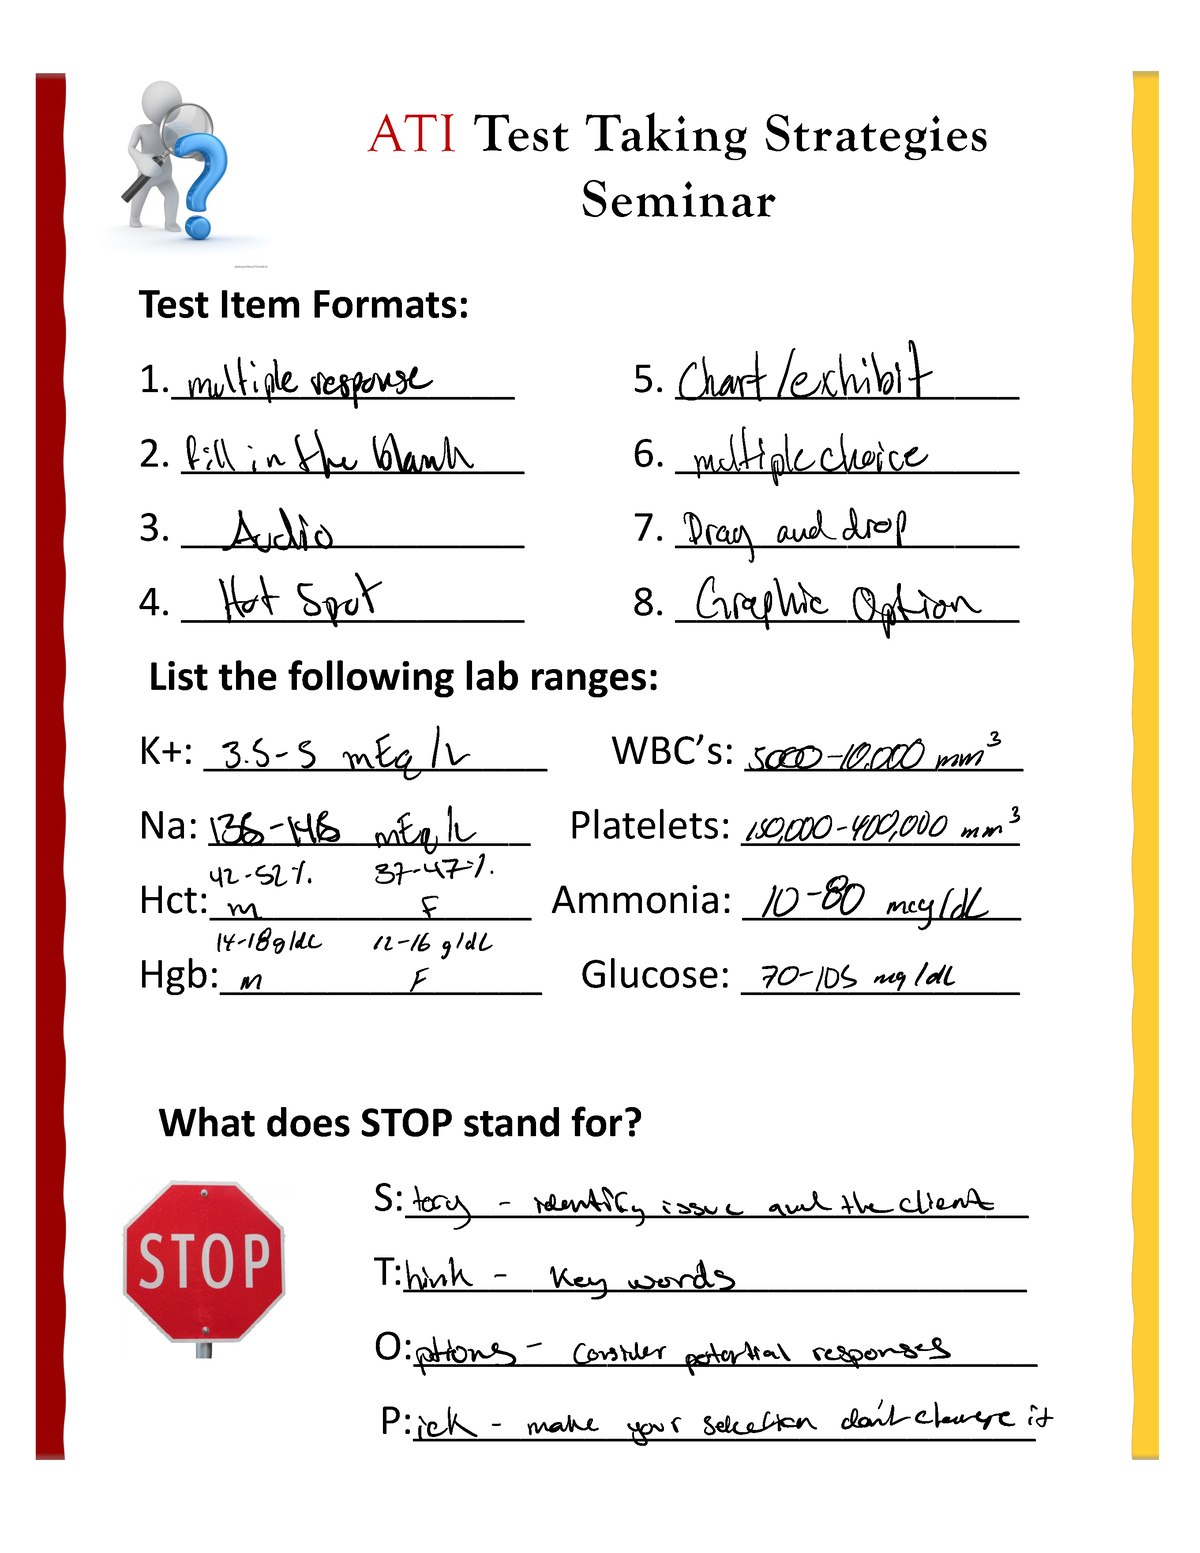 ATI Test Taking Strategies
Seminar
Test Item Formats:
1. multiple response
5. Chart/exhibit
2. fill in the blank
6. multiple choice
3. Audio
7. Drag and drop
4. Hot Spot
8. Graphic Option
List the following lab ranges:
K+: 3.5-5 mEq/L
WBC's: 5000-10,000 mm³
Na: 136-145 mEq/L
Platelets: 150,000-400,000 mm³
42-52% 37-47%
Hct: m F
Ammonia: 10-80 mcg/dL
14-18 g/dL 12-16 g/dL
Hgb: m F
Glucose: 70-105 mg/dL
What does STOP stand for?
STOP
S: tory - identify issue and the client
T: hink - Key words
O: ptions - consider potential responses
P: ick - make your selection don't change it